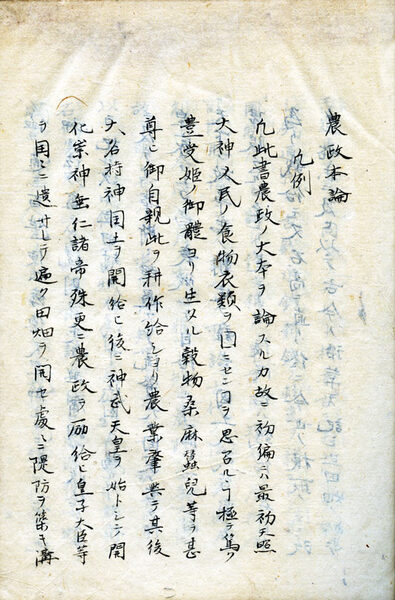 農政本論
凡例
凡此書農政ノ大本ヲ論スルカ故ニ初編ニハ最初天照
大神人民ノ食物衣類ヲ国ニセンヿヲ思召ルヿ極テ篤ク
豊受姫ノ御體ヨリ生ツル穀物桑麻蠶兒等ヲ甚
尊ヒ御自親此ヲ耕作給ショリ農業肇興テ其後
大名持神国土ヲ開給ヒ後ニ神武天皇ヲ始トシテ開
化崇神垂仁諸帝殊更ニ農政ヲ励給ヒ皇子大臣等
ヲ国ニ遣サレテ遍ク田畑ヲ開セ處々ニ隄防ヲ築キ溝